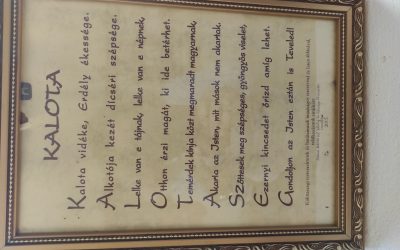 KALOTA
Kalota vidéke, Erdély ékessége.
Alkotója kezét dícséri szépsége.
Lelke van e tájnak, lelke van e népnek,
Otthon érzi magát, ki ide betérhet.
Temérdek kínja közt megmaradt magyarnak,
Akarta az Isten, mit mások nem akartak.
Szőttesek meg szépséges, gyöngyös viselet,
Ezernyi kincsedet őrizd amíg lehet.
Gondoljon az Isten eztán is Teveled!